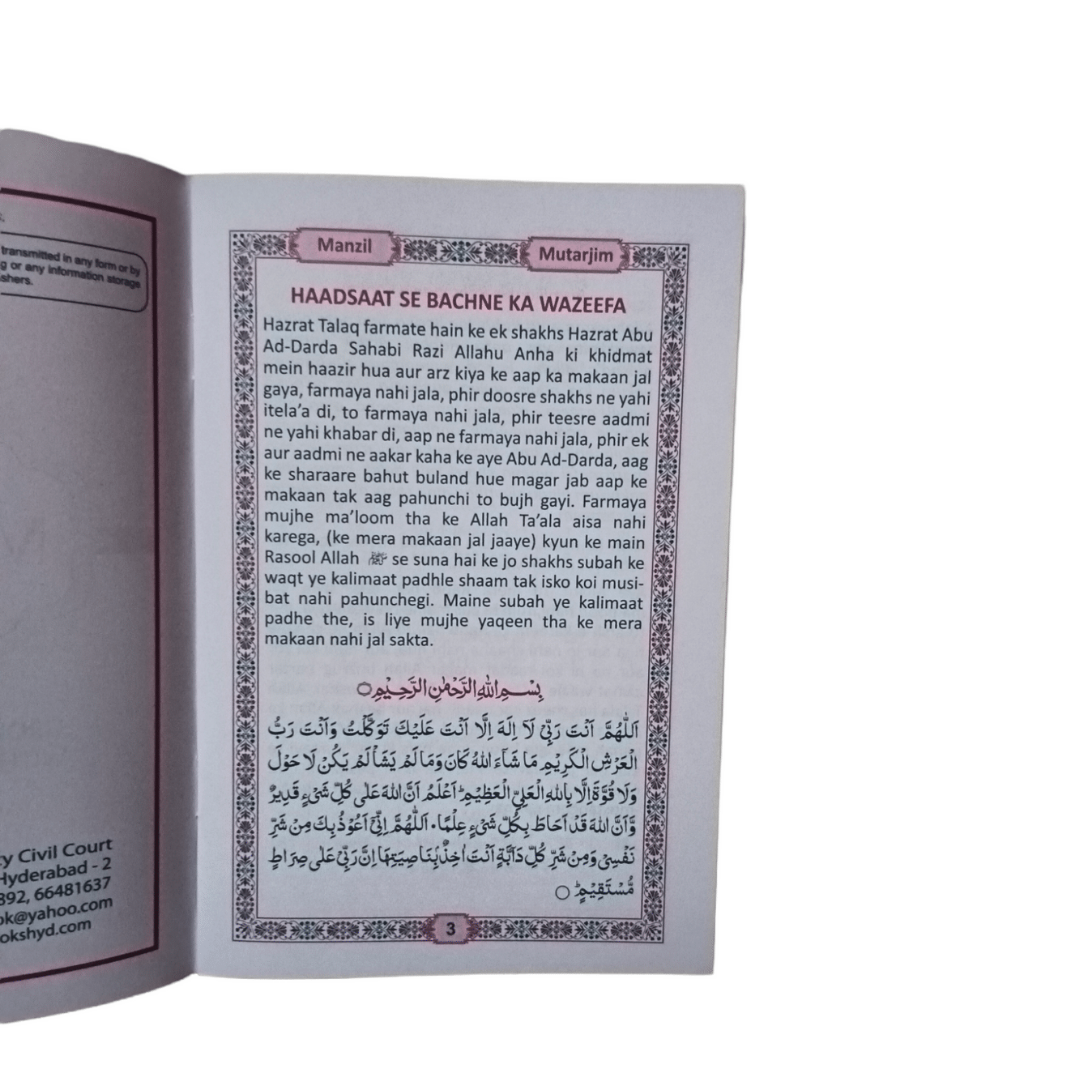 s.
transmitted in any form or by
g or any information storage
shers.
cy Civil Court
Hyderabad - 2
892, 66481637
ok@yahoo.com
okshyd.com
Manzil
Mutarjim
HAADSAAT SE BACHNE KA WAZEEFA
Hazrat Talaq farmate hain ke ek shakhs Hazrat Abu
Ad-Darda Sahabi Razi Allahu Anha ki khidmat
mein haazir hua aur arz kiya ke aap ka makaan jal
gaya, farmaya nahi jala, phir doosre shakhs ne yahi
itela’a di, to farmaya nahi jala, phir teesre aadmi
ne yahi khabar di, aap ne farmaya nahi jala, phir ek
aur aadmi ne aakar kaha ke aye Abu Ad-Darda, aag
ke sharaare bahut buland hue magar jab aap ke
makaan tak aag pahunchi to bujh gayi. Farmaya
mujhe ma’loom tha ke Allah Ta’ala aisa nahi
karega, (ke mera makaan jal jaaye) kyun ke main
Rasool Allah ﷺ se suna hai ke jo shakhs subah ke
waqt ye kalimaat padhle shaam tak isko koi musi-
bat nahi pahunchegi. Maine subah ye kalimaat
padhe the, is liye mujhe yaqeen tha ke mera
makaan nahi jal sakta.
بِسْمِ اللهِ الرَّحْمٰنِ الرَّحِيْمِ ○
اَللّٰهُمَّ اَنْتَ رَبِّيْ لَآ اِلٰهَ اِلَّا اَنْتَ عَلَيْكَ تَوَكَّلْتُ وَاَنْتَ رَبُّ
الْعَرْشِ الْكَرِيْمِ مَا شَآءَ اللهُ كَانَ وَمَا لَمْ يَشَاْ لَمْ يَكُنْ لَا حَوْلَ
وَلَا قُوَّةَ اِلَّا بِاللهِ الْعَلِيِّ الْعَظِيْمِ ؕ اَعْلَمُ اَنَّ اللهَ عَلٰى كُلِّ شَىْءٍ قَدِيْرٌ
وَّاَنَّ اللهَ قَدْ اَحَاطَ بِكُلِّ شَىْءٍ عِلْمًا۔ اَللّٰهُمَّ اِنِّيْٓ اَعُوْذُ بِكَ مِنْ شَرِّ
نَفْسِيْ وَمِنْ شَرِّ كُلِّ دَآبَّةٍ اَنْتَ اٰخِذٌۢ بِنَاصِيَتِهَا اِنَّ رَبِّيْ عَلٰى صِرَاطٍ
مُّسْتَقِيْمٍ ؕ ○
3